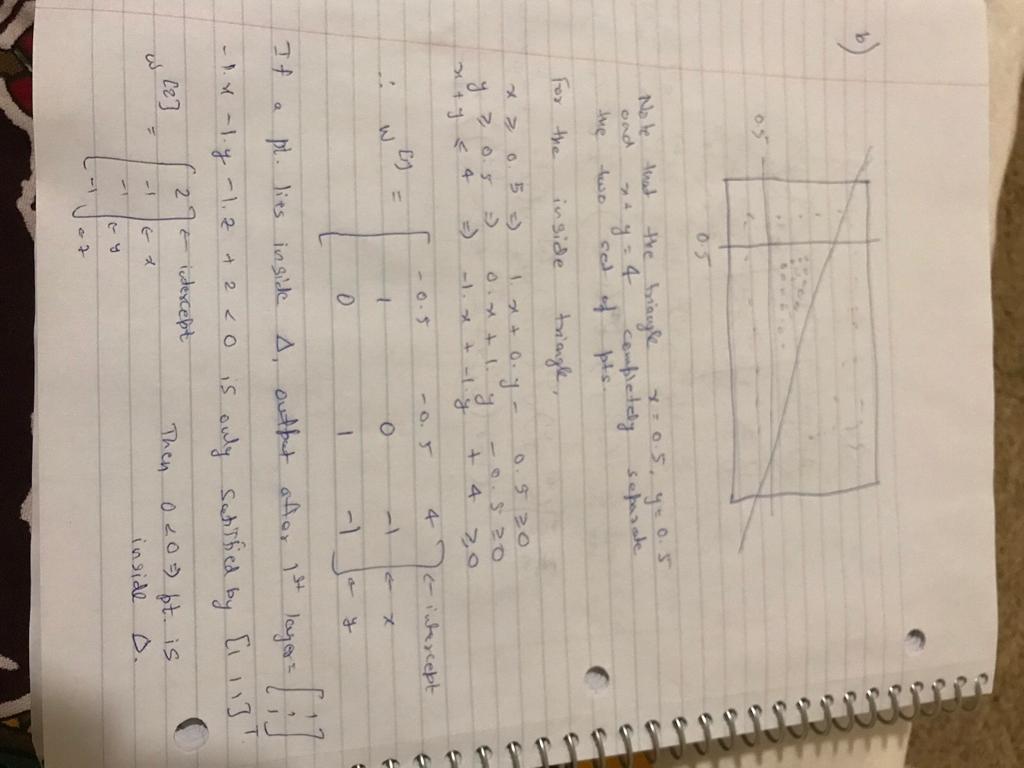 b)
0.5
0.5
Note that the triangle x = 0.5, y = 0.5
and x + y = 4 completely separate
the two set of pts.
For the inside triangle,
x ≥ 0.5 ⇒ 1.x + 0.y - 0.5 ≥ 0
y ≥ 0.5 ⇒ 0.x + 1.y - 0.5 ≥ 0
x + y ≤ 4 ⇒ -1.x + -1.y + 4 ≥ 0
∴ W[1] = [ -0.5 -0.5 4 ] ← intercept
1 0 -1 ← x
0 1 -1 ← y
If a pt. lies inside Δ, output after 1st layer = [1 1 1]
-1.x -1.y -1.z + 2 < 0 is only satisfied by [1 1 1]T.
W[2] = [ 2 ] ← intercept
-1 ← x
-1 ← y
-1 ← z
Then 0 < 0 ⇒ pt. is
inside Δ.